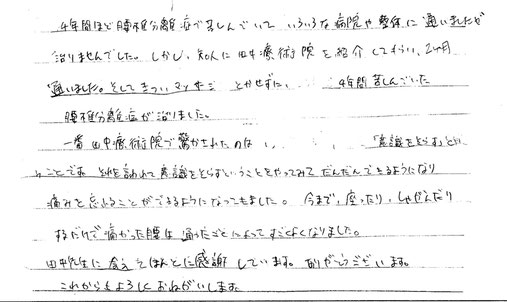 4年間ほど腰椎分離症で苦しんでいて いろいろな病院や整体に通いましたが
治りませんでした。しかし、知人に田中療術院を紹介してもらい、2ヶ月
通いました。そしてきついマッサージ とかせずに、 4年間苦しんでいた
腰椎分離症が治りました。
一番田中療術院で驚かされたのは、 「意識をとらす」とい
うことです。それを言われて意識をとらすということをやってみてだんだんできるようになり
痛みを忘れることができるようになってきました。今まで、座ったり、しゃがんだり
するだけで痛かった腰は通ったことによってすごくよくなりました。
田中先生に会えてほんとに感謝しています。ありがとうございます。
これからもよろしくおねがいします。